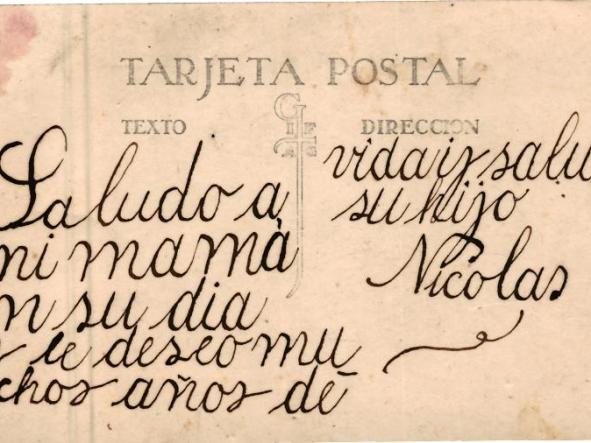 TARJETA POSTAL
TEXTO
DIRECCION
Saludo a
mi mamá
en su dia
y le deseo mu
chos años de
vida y salu
su hijo
Nicolas